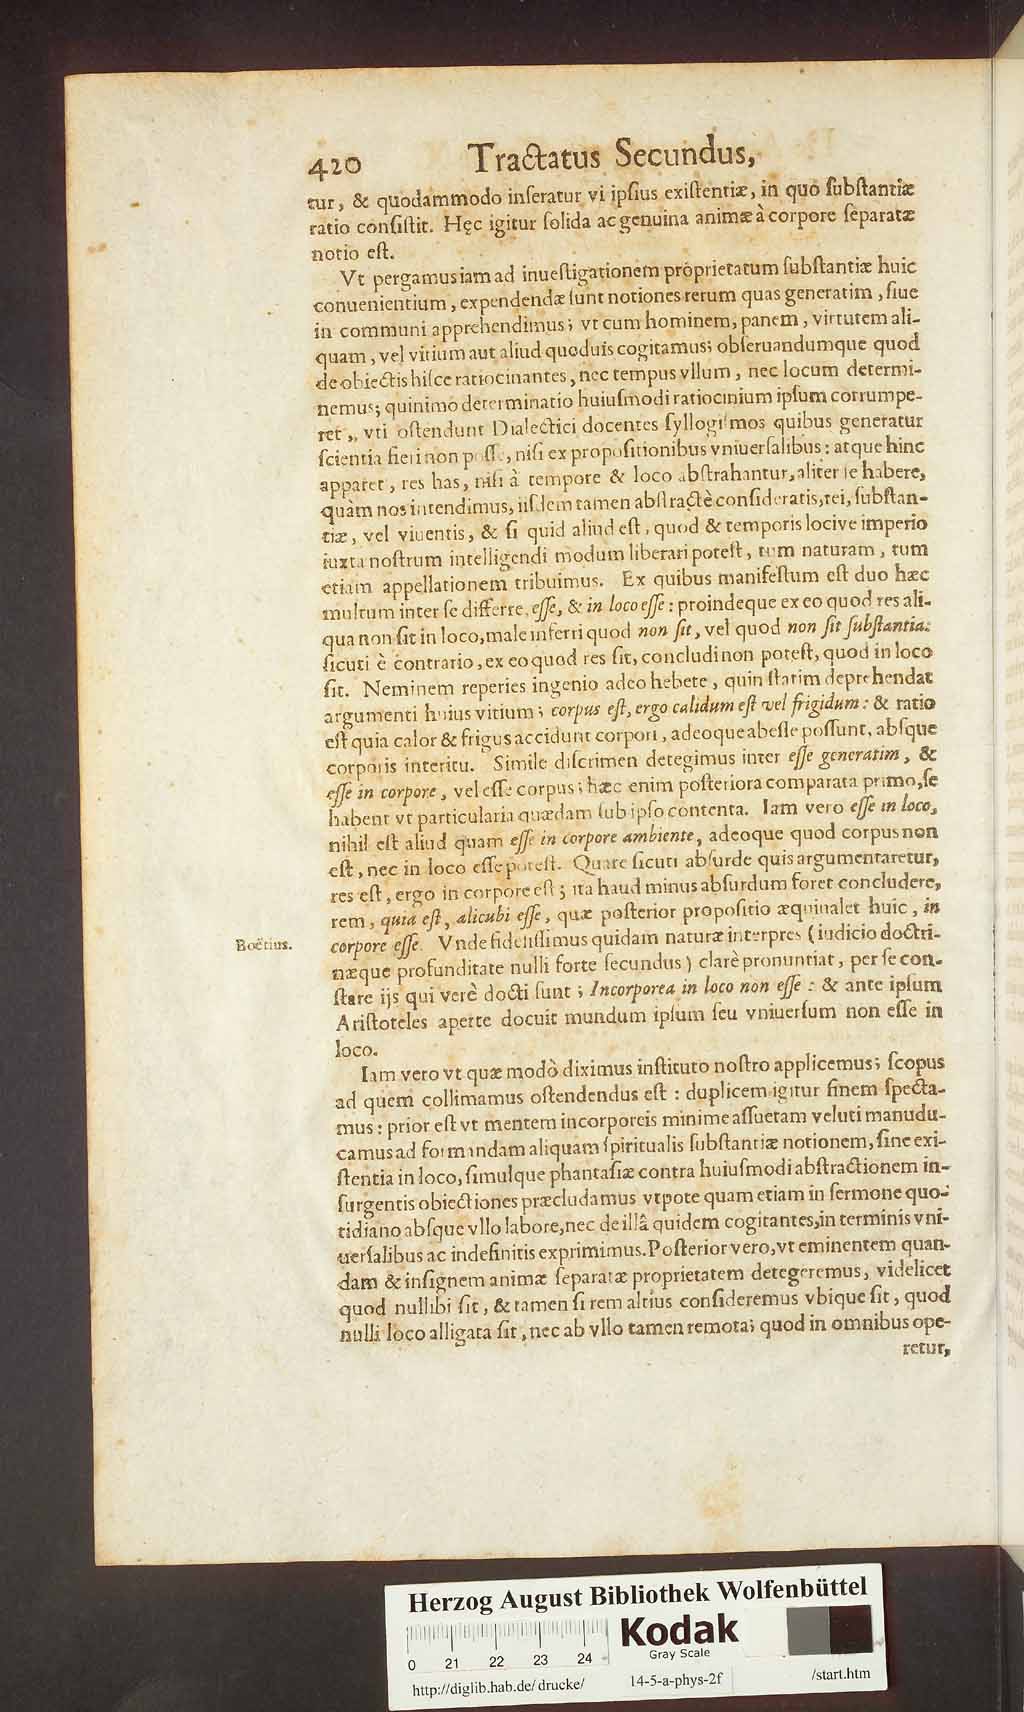 420 Tractatus Secundus,
tur, & quodammodo inſeratur vi ipſius exiſtentiæ, in quo ſubſtantiæ
ratio conſiſtit. Hęc igitur ſolida ac genuina animæ à corpore ſeparatæ
notio eſt.
Vt pergamus iam ad inueſtigationem proprietatum ſubſtantiæ huic
conuenientium, expendendæ ſunt notiones rerum quas generatim, ſiue
in communi apprehendimus; vt cum hominem, panem, virtutem ali-
quam, vel vitium aut aliud quoduis cogitamus; obſeruandumque quod
de obiectis hiſce ratiocinantes, nec tempus vllum, nec locum determi-
nemus; quinimo determinatio huiuſmodi ratiocinium ipſum corrumpe-
ret, vti oſtendunt Dialectici docentes ſyllogiſmos quibus generatur
ſcientia fieri non poſſe, niſi ex propoſitionibus vniuerſalibus: atque hinc
apparet, res has, niſi à tempore & loco abſtrahantur, aliter ſe habere,
quàm nos intendimus, iiſdem tamen abſtractè conſideratis, rei, ſubſtan-
tiæ, vel viuentis, & ſi quid aliud eſt, quod & temporis locive imperio
iuxta noſtrum intelligendi modum liberari poteſt, tum naturam, tum
etiam appellationem tribuimus. Ex quibus manifeſtum eſt duo hæc
multum inter ſe differre, eſſe, & in loco eſſe: proindeque ex eo quod res ali-
qua non ſit in loco, male inferri quod non ſit, vel quod non ſit ſubſtantia:
ſicuti è contrario, ex eo quod res ſit, concludi non poteſt, quod in loco
ſit. Neminem reperies ingenio adeo hebete, quin ſtatim deprehendat
argumenti huius vitium; corpus eſt, ergo calidum eſt vel frigidum: & ratio
eſt quia calor & frigus accidunt corpori, adeoque abeſſe poſſunt, abſque
corporis interitu. Simile diſcrimen detegimus inter eſſe generatim, &
eſſe in corpore, vel eſſe corpus; hæc enim poſteriora comparata primo, ſe
habent vt particularia quædam ſub ipſo contenta. Iam vero eſſe in loco,
nihil eſt aliud quam eſſe in corpore ambiente, adeoque quod corpus non
eſt, nec in loco eſſe poteſt. Quare ſicuti abſurde quis argumentaretur,
res eſt, ergo in corpore eſt; ita haud minus abſurdum foret concludere,
rem, quia eſt, alicubi eſſe, quæ poſterior propoſitio æquiualet huic, in
Boëtius.
corpore eſſe. Vnde fideliſſimus quidam naturæ interpres (iudicio doctri-
næque profunditate nulli forte ſecundus) clarè pronuntiat, per ſe con-
ſtare ijs qui verè docti ſunt; Incorporea in loco non eſſe: & ante ipſum
Ariſtoteles aperte docuit mundum ipſum ſeu vniuerſum non eſſe in
loco.
Iam vero vt quæ modò diximus inſtituto noſtro applicemus; ſcopus
ad quem collimamus oſtendendus eſt: duplicem igitur finem ſpecta-
mus: prior eſt vt mentem incorporeis minime aſſuetam veluti manudu-
camus ad formandam aliquam ſpiritualis ſubſtantiæ notionem, ſine exi-
ſtentia in loco, ſimulque phantaſiæ contra huiuſmodi abſtractionem in-
ſurgentis obiectiones præcludamus vtpote quam etiam in ſermone quo-
tidiano abſque vllo labore, nec de illâ quidem cogitantes, in terminis vni-
uerſalibus ac indefinitis exprimimus. Poſterior vero, vt eminentem quan-
dam & inſignem animæ ſeparatæ proprietatem detegeremus, videlicet
quod nullibi ſit, & tamen ſi rem altius conſideremus vbique ſit, quod
nulli loco alligata ſit, nec ab vllo tamen remota; quod in omnibus ope-
retur,
Herzog August Bibliothek Wolfenbüttel
0 21 22 23 24
Kodak
Gray Scale
http://diglib.hab.de/drucke/ 14-5-a-phys-2f /start.htm